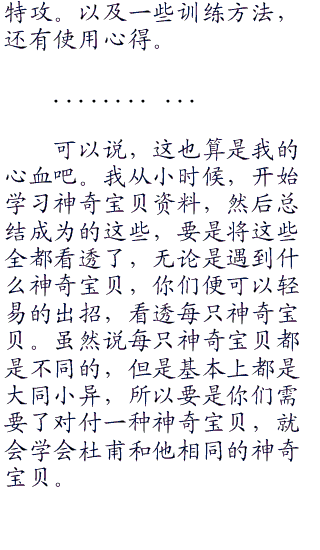 特攻。以及一些训练方法，
还有使用心得。
........ ...
可以说，这也算是我的
心血吧。我从小时候，开始
学习神奇宝贝资料，然后总
结成为的这些，要是将这些
全都看透了，无论是遇到什
么神奇宝贝，你们便可以轻
易的出招，看透每只神奇宝
贝。虽然说每只神奇宝贝都
是不同的，但是基本上都是
大同小异，所以要是你们需
要了对付一种神奇宝贝，就
会学会杜甫和他相同的神奇
宝贝。